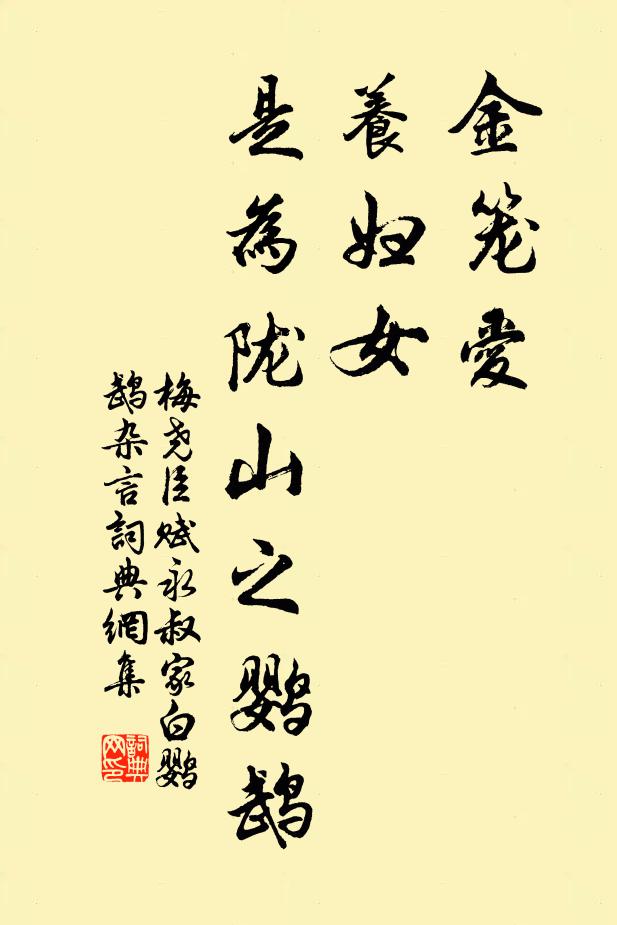 金笼愛
養妇女
是為陇山之鹦鹉
梅尧臣赋永叔家白鹦
鹉杂言詞典網集
詞典
网印